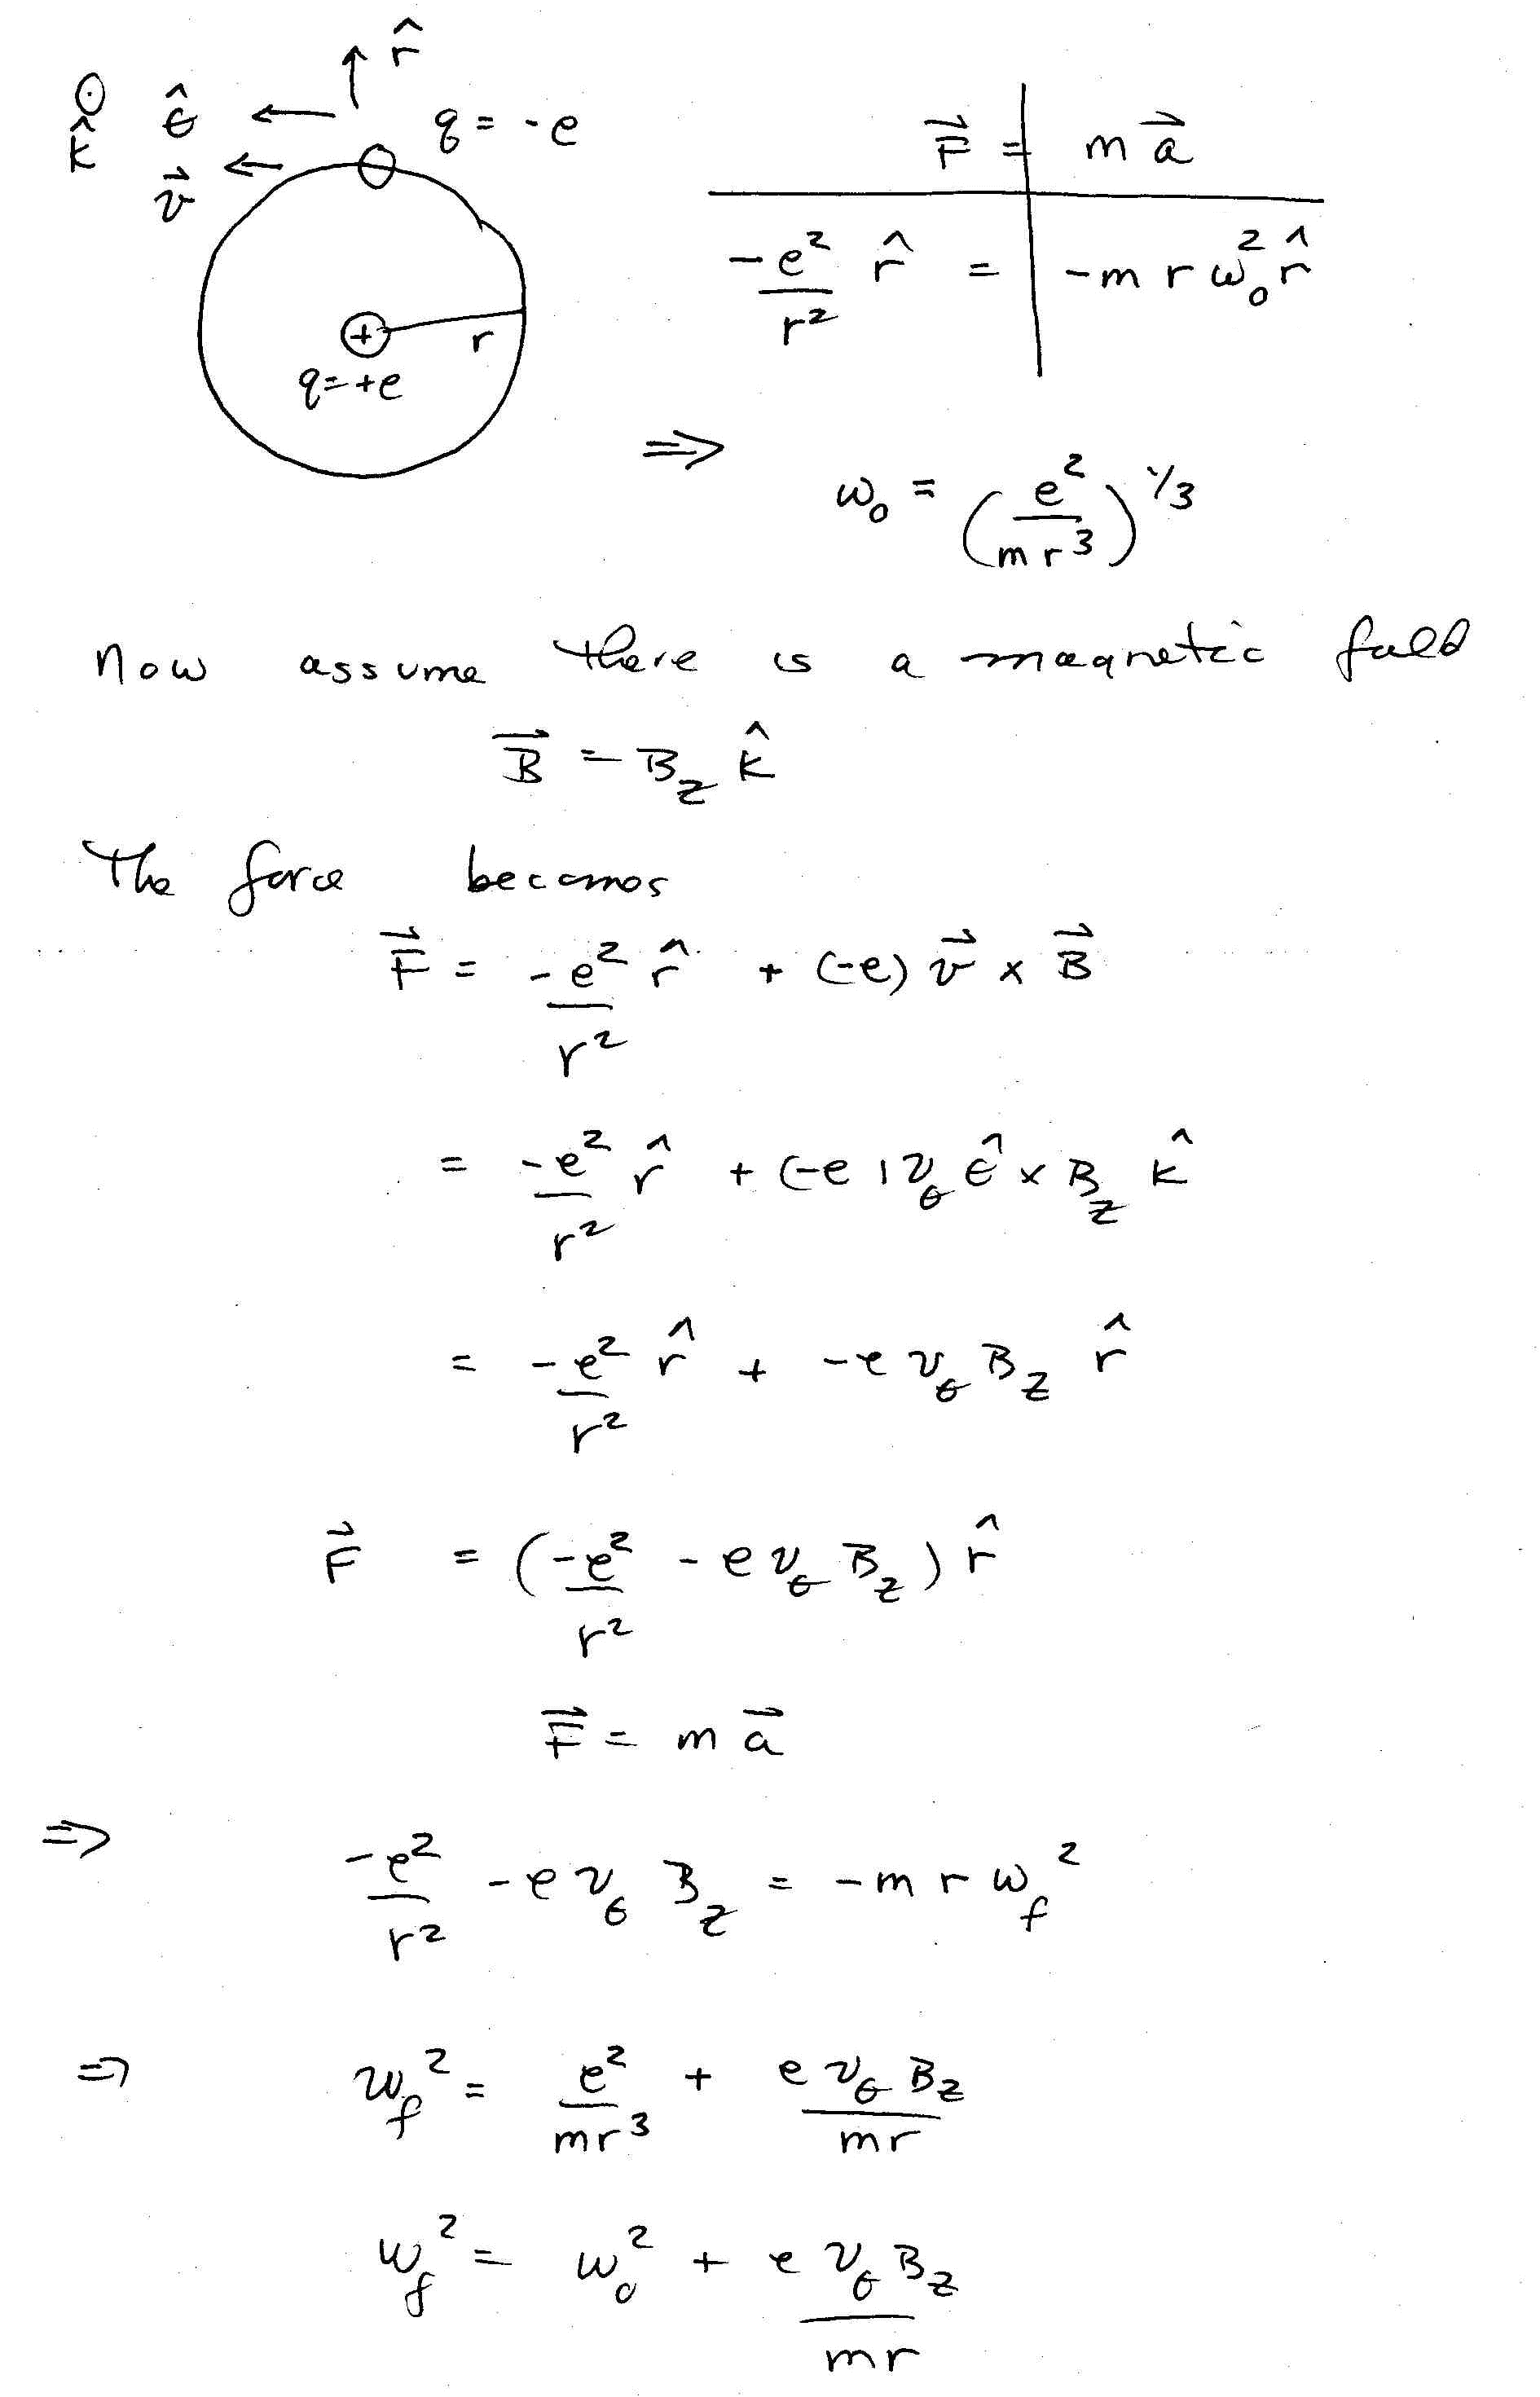 r̂
⊙ θ̂ q = -e
k̂ v⃗
+ r
q=+e
F⃗ = m a⃗
-e²/r² r̂ = -m r ω₀² r̂
⇒ ω₀ = (e²/mr³)^1/3
Now assume there is a magnetic field
B⃗ = B_z k̂
The force becomes
F⃗ = -e²/r² r̂ + (-e) v⃗ × B⃗
= -e²/r² r̂ + (-e) v_θ θ̂ × B_z k̂
= -e²/r² r̂ + -e v_θ B_z r̂
F⃗ = (-e²/r² - e v_θ B_z) r̂
F⃗ = m a⃗
⇒ -e²/r² - e v_θ B_z = -m r ω_f²
⇒ ω_f² = e²/mr³ + e v_θ B_z/mr
ω_f² = ω₀² + e v_θ B_z/mr